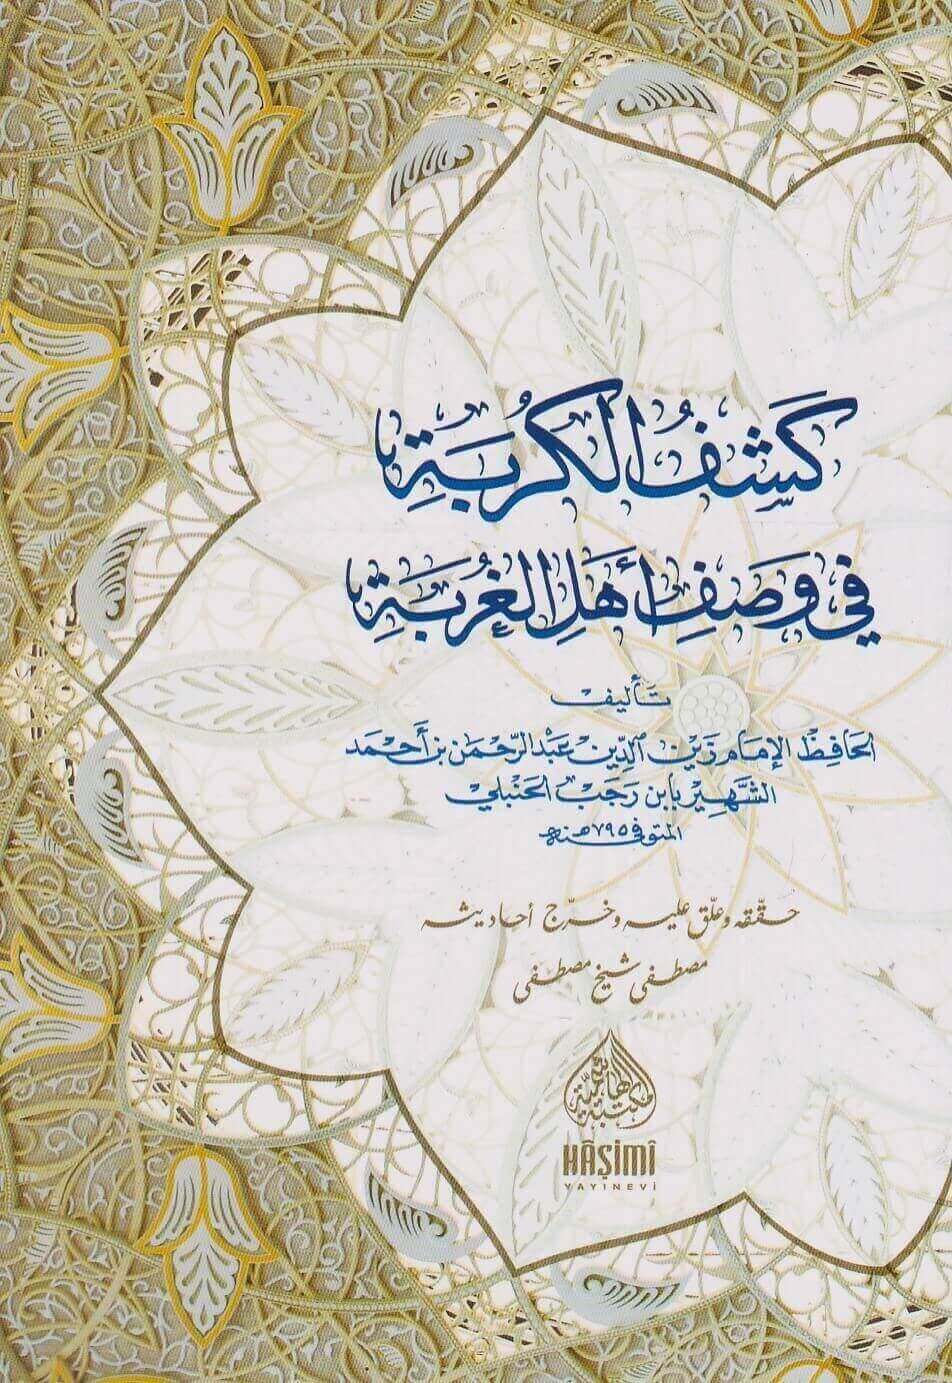 كَشْفُ الْكُرْبَةِ
فِي وَصْفِ أَهْلِ الْغُرْبَةِ
تأليف
الحَافِظ الإمَام زَيْن الدِّين عَبْد الرَّحْمٰن بن أَحْمَد
الشَّهِيْر بابن رَجَب الحَنْبَلي
المتوفى ٧٩٥هـ
حقّقه وعلّق عليه وخرّج أحاديثه
مصطفى شيخ مصطفى
المكتبة الهاشمية
HÂŞİMÎ
YAYINEVİ